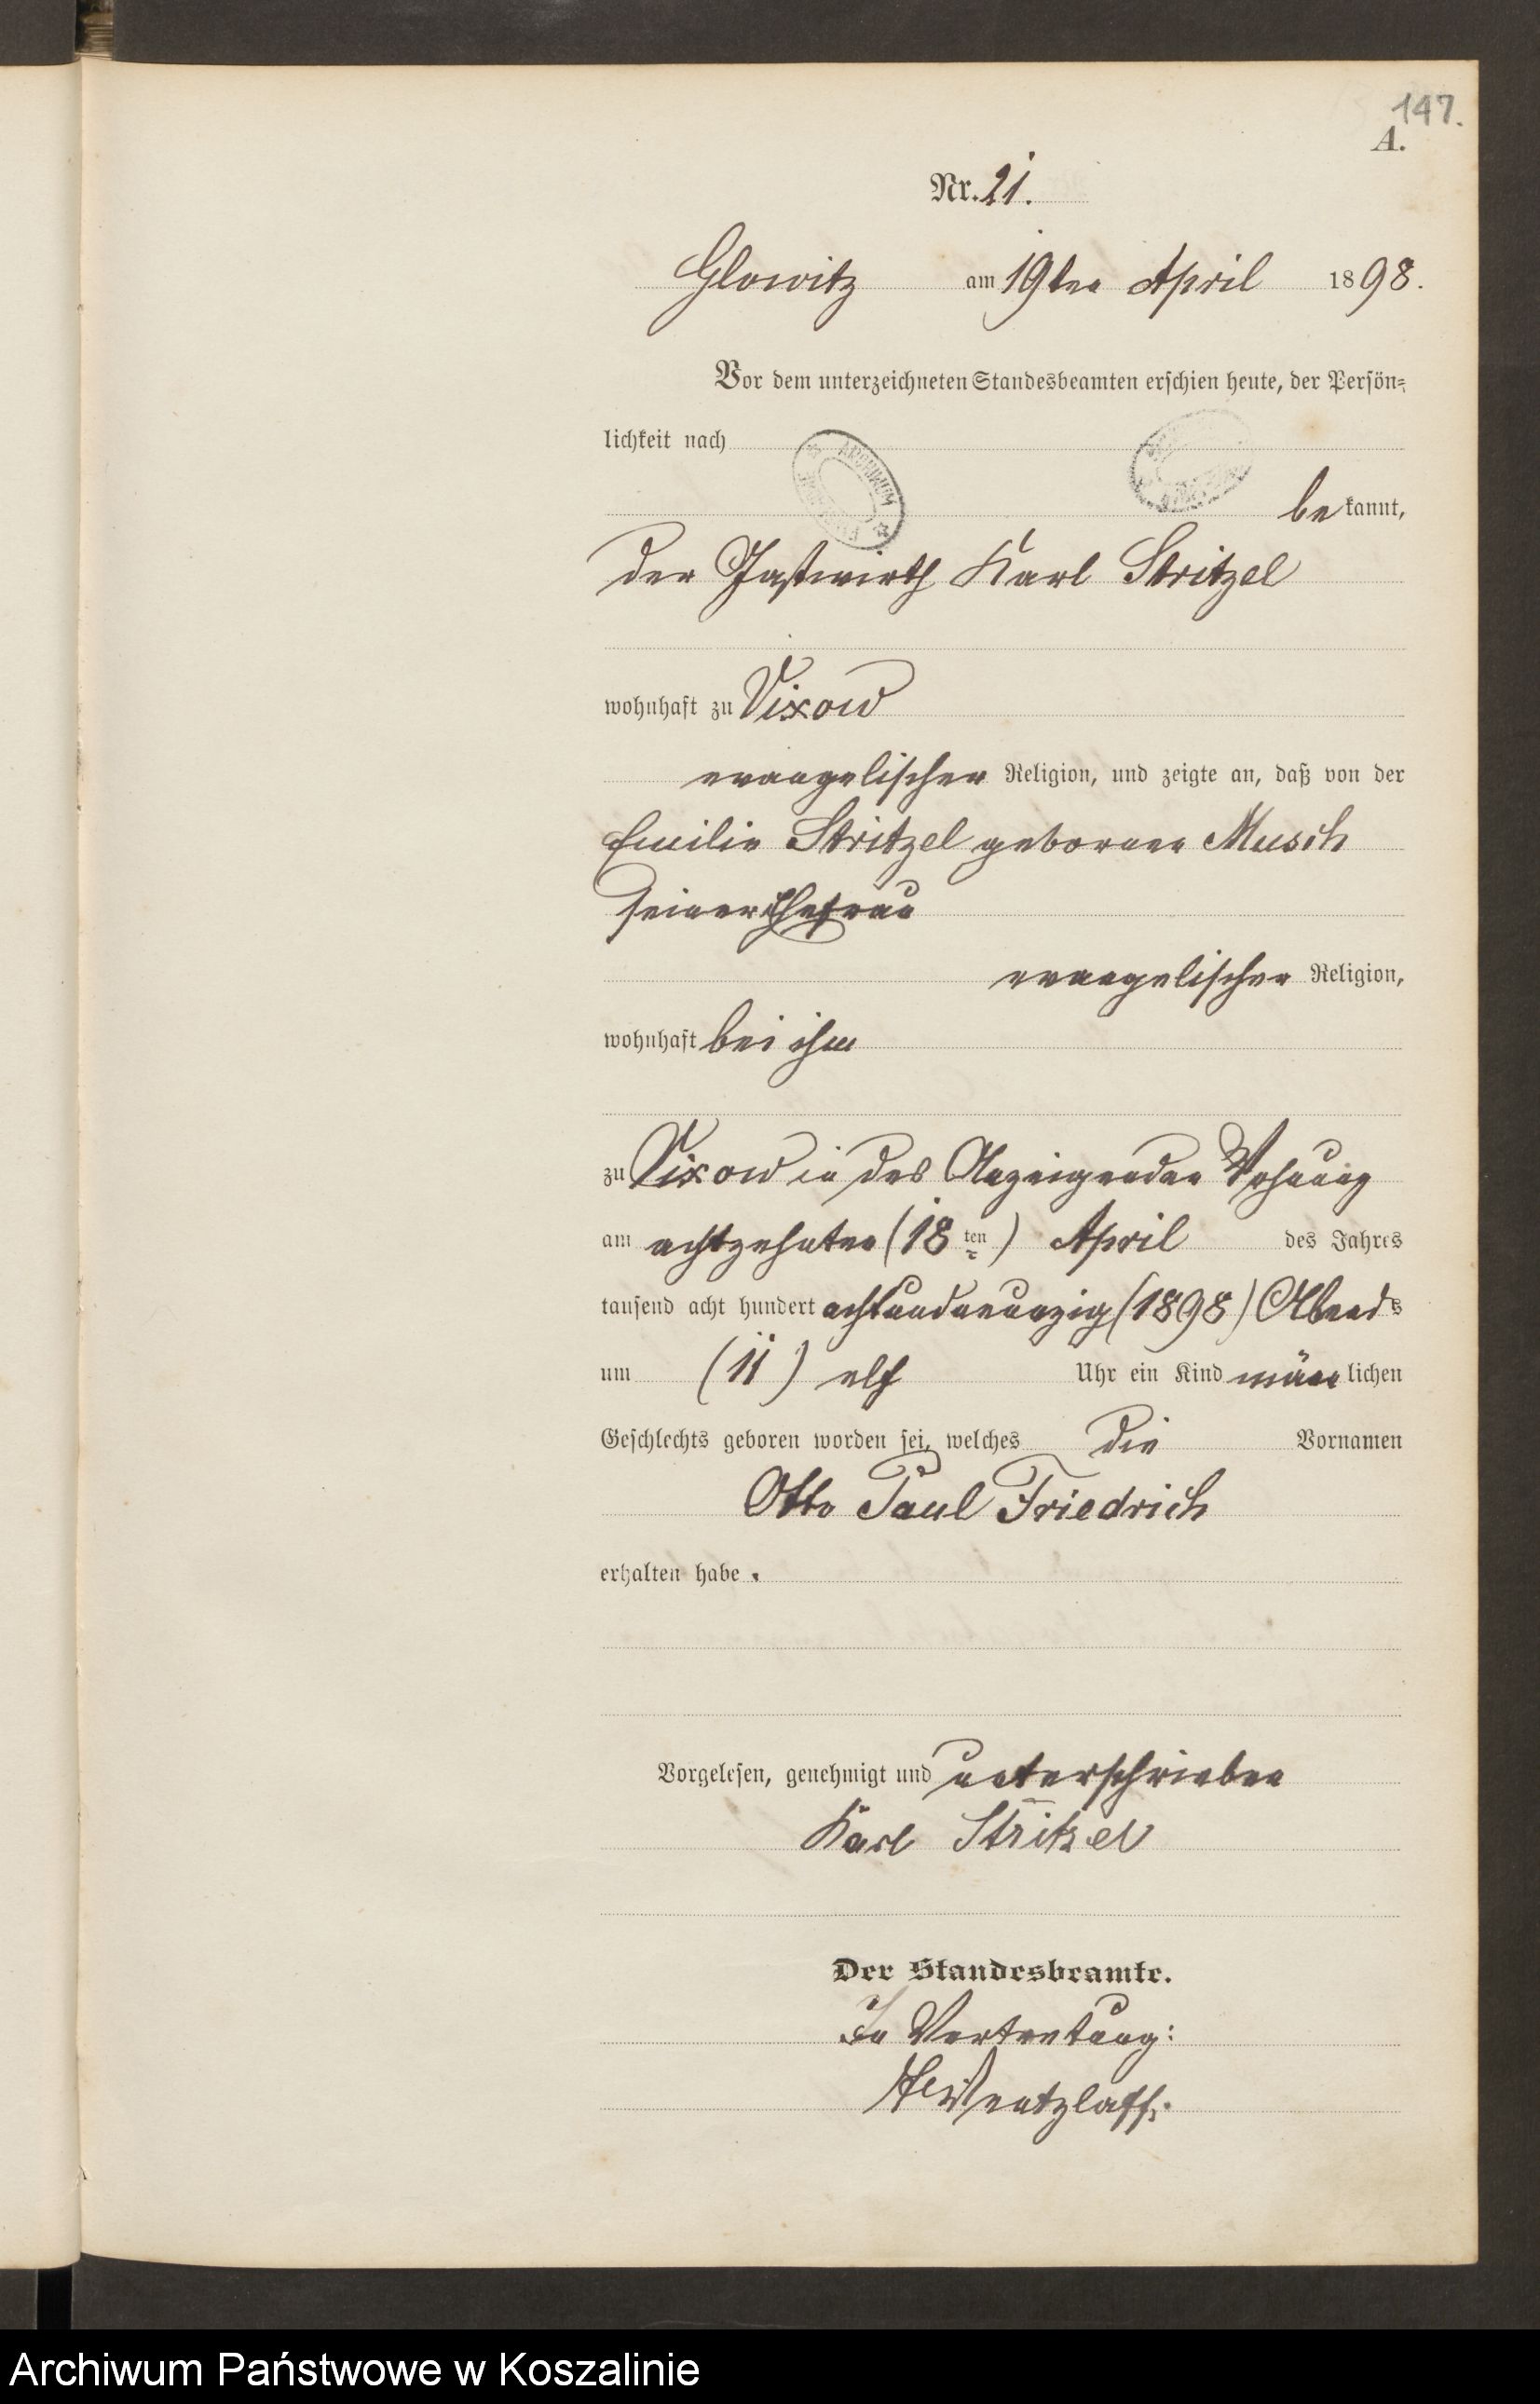 147.
A.
Nr. 21.
Glowitz am 19ten April 1898.
Vor dem unterzeichneten Standesbeamten erschien heute, der Persön-
lichkeit nach
ARCHIWUM
bekannt,
der Gastwirth Karl Stritzel
wohnhaft zu Vixow
evangelischer Religion, und zeigte an, daß von der
Emilie Stritzel geborenen Musch
seiner Ehefrau
evangelischer Religion,
wohnhaft bei ihm
zu Vixow in des Anzeigenden Wohnung
am achtzehnten (18ten) April des Jahres
tausend acht hundert achtundneunzig (1898) Abends
um (11) elf Uhr ein Kind männlichen
Geschlechts geboren worden sei, welches die Vornamen
Otto Paul Friedrich
erhalten habe.
Vorgelesen, genehmigt und unterschrieben
Karl Stritzel
Der Standesbeamte.
In Vertretung:
Wentzlaff.
Archiwum Państwowe w Koszalinie